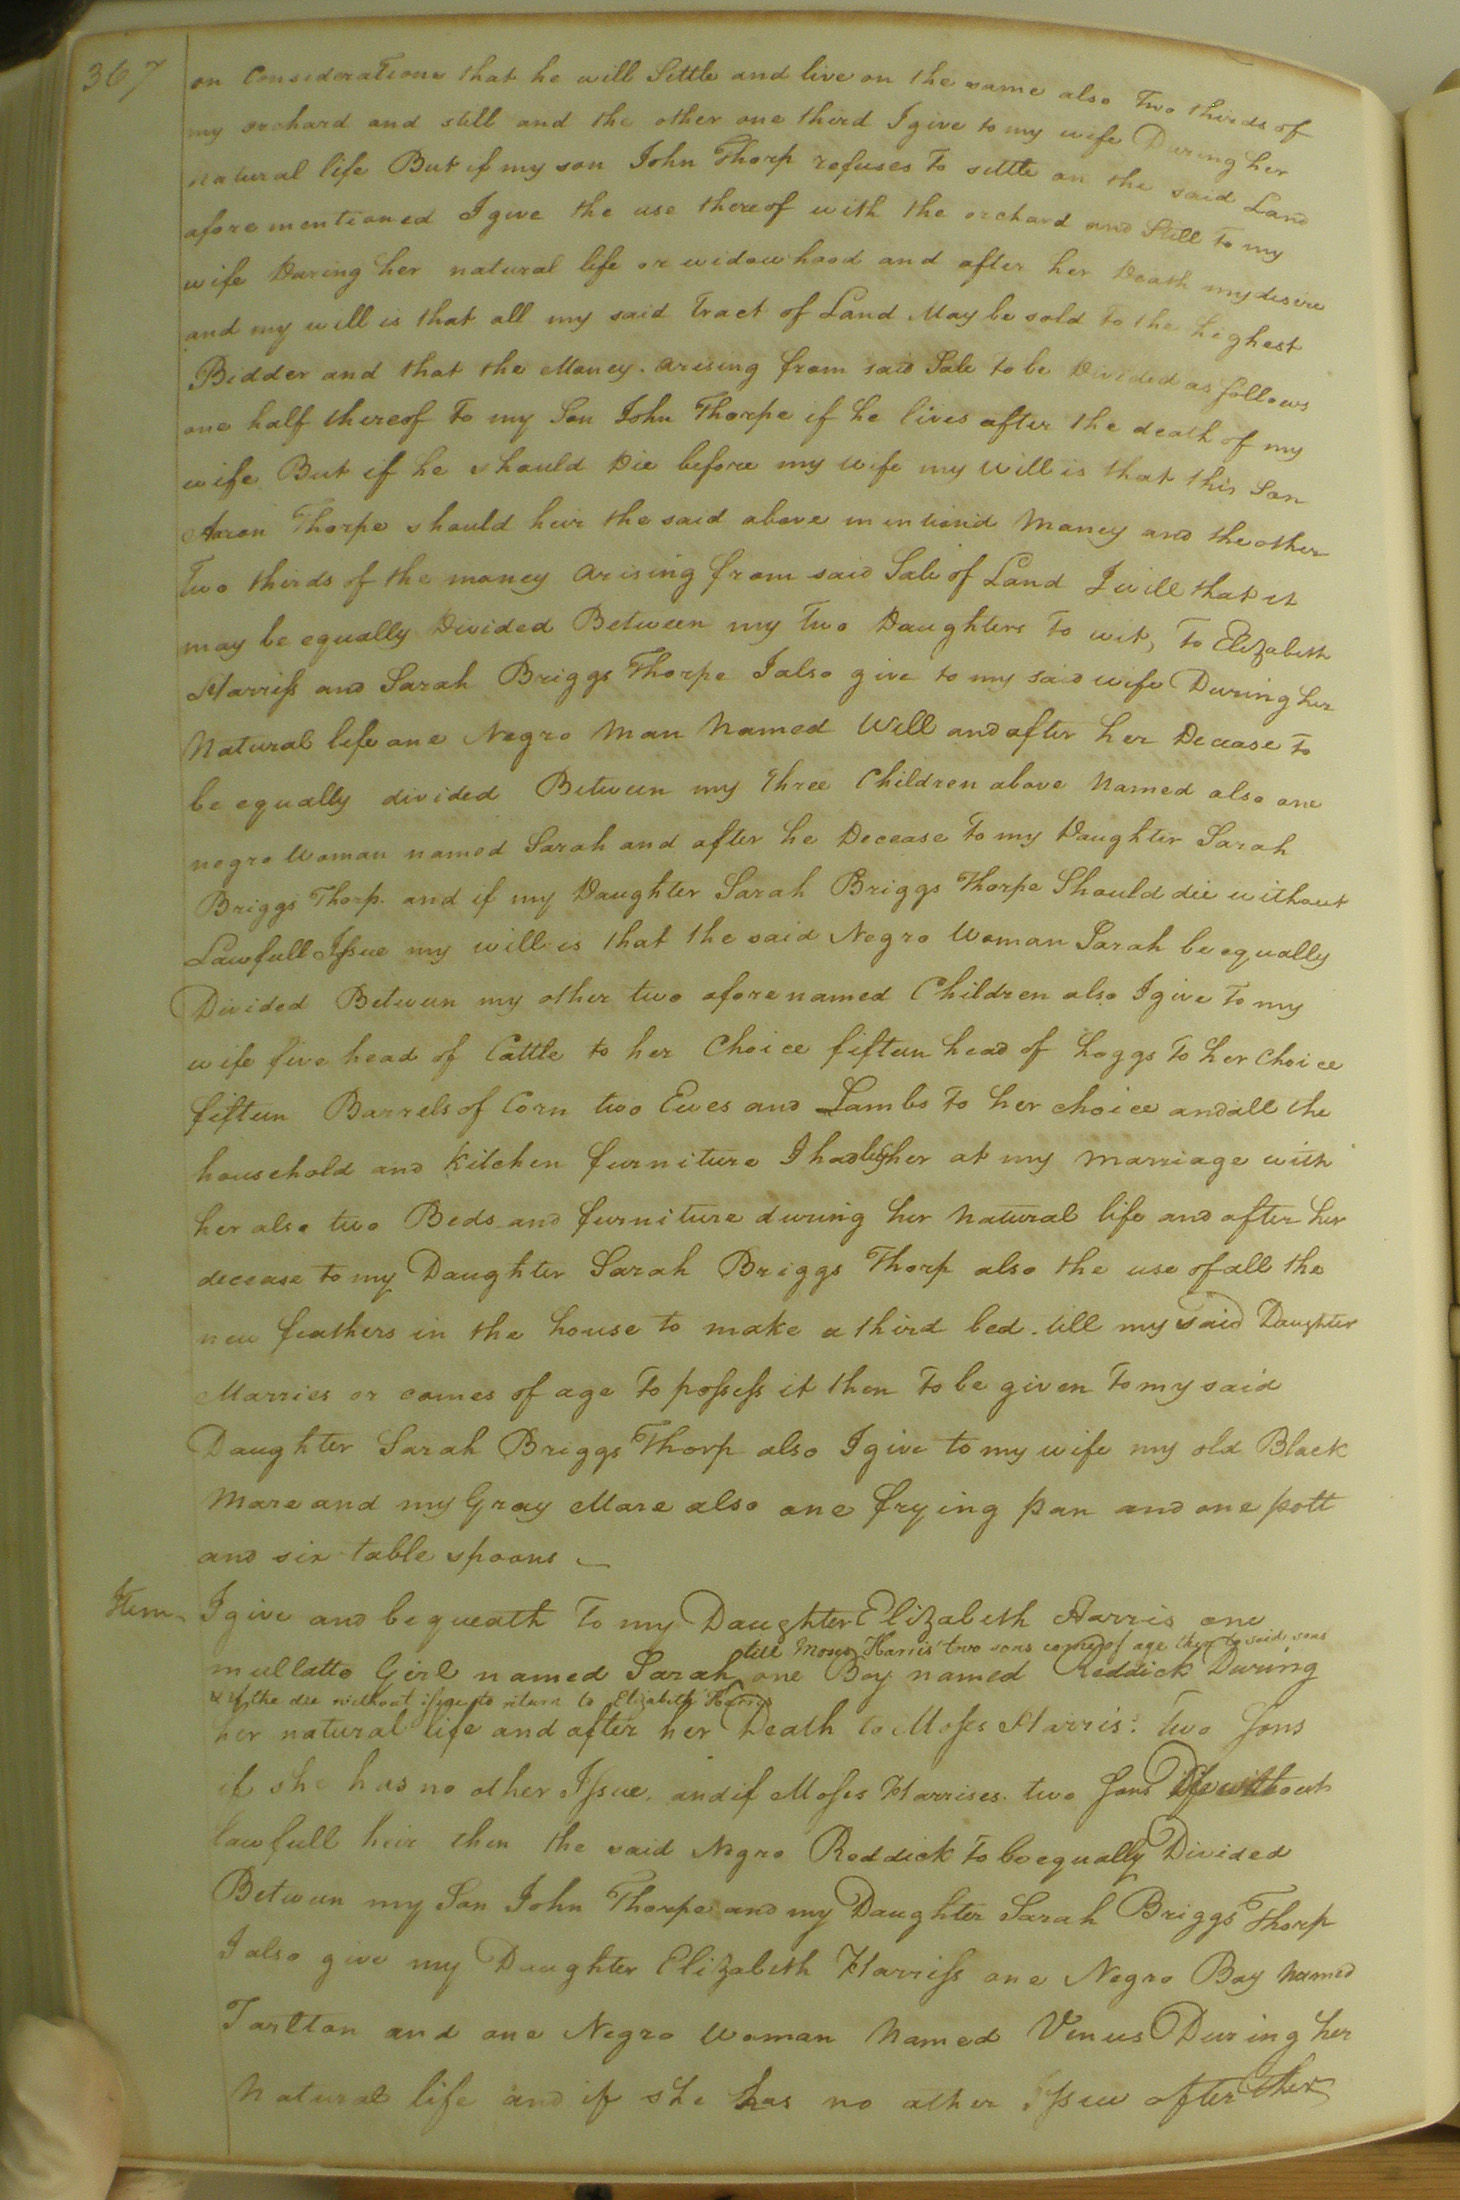 367
on Considerations that he will Settle and live on the same also Two thirds of
my orchard and still and the other one third I give to my wife During her
natural life But if my son John Thorp refuses To settle on the said Land
afore mentioned I give the use thereof with the orchard and Still To my
wife During her natural life or widowhood and after her Death my desire
and my will is that all my said Tract of Land May be sold To the highest
Bidder and that the Money arising from said Sale to be Divided as follows
one half thereof To my Son John Thorpe if he lives after the death of my
wife But if he should Die before my wife my will is that this Son
Aaron Thorpe should heir the said above mentiond Money and the other
Two thirds of the money arising from said Sale of Land I will that it
may be equally Divided Between my Two Daughters To wit, To Elizabeth
Harriss and Sarah Briggs Thorpe I also give to my said wife During her
Natural life one Negro Man Named Will and after her Decease To
be equally divided Between my Three Children above Named also one
negro Woman named Sarah and after he Decease To my Daughter Sarah
Briggs Thorp. and if my Daughter Sarah Briggs Thorpe Should die without
Lawfull Issue my will is that the said Negro Woman Sarah be equally
Divided Between my other two aforenamed Children also I give To my
wife five head of Cattle to her Choice fifteen head of hoggs To her Choice
fifteen Barrels of Corn two Ewes and Lambs To her choice and all the
household and Kitchen furniture I had by her at my marriage with
her also two Beds and furniture during her Natural life and after her
decease to my Daughter Sarah Briggs Thorp also the use of all the
new feathers in the house to make a third bed till my said Daughter
Marries or comes of age To possess it then To be given To my said
Daughter Sarah Briggs Thorp also I give to my wife my old Black
Mare and my Gray Mare also one frying pan and one pott
and six table spoons
Item I give and bequeath To my Daughter Elizabeth Harris one
till Moses Harris' two sons comes of age then to said sons
mullatto Girl named Sarah one Boy named Reddick During
& if the die without issue to return to Elizabeth Harris
her natural life and after her Death to Moses Harris: two Sons
if she has no other Issue. and if Moses Harrises two Sons Die without
lawfull heir then the said Negro Reddick To be equally Divided
Between my Son John Thorpe and my Daughter Sarah Briggs Thorp
I also give my Daughter Elizabeth Harriss one Negro Boy Named
Tarlton and one Negro Woman Named Venus During her
Natural life and if she has no other Issue after her